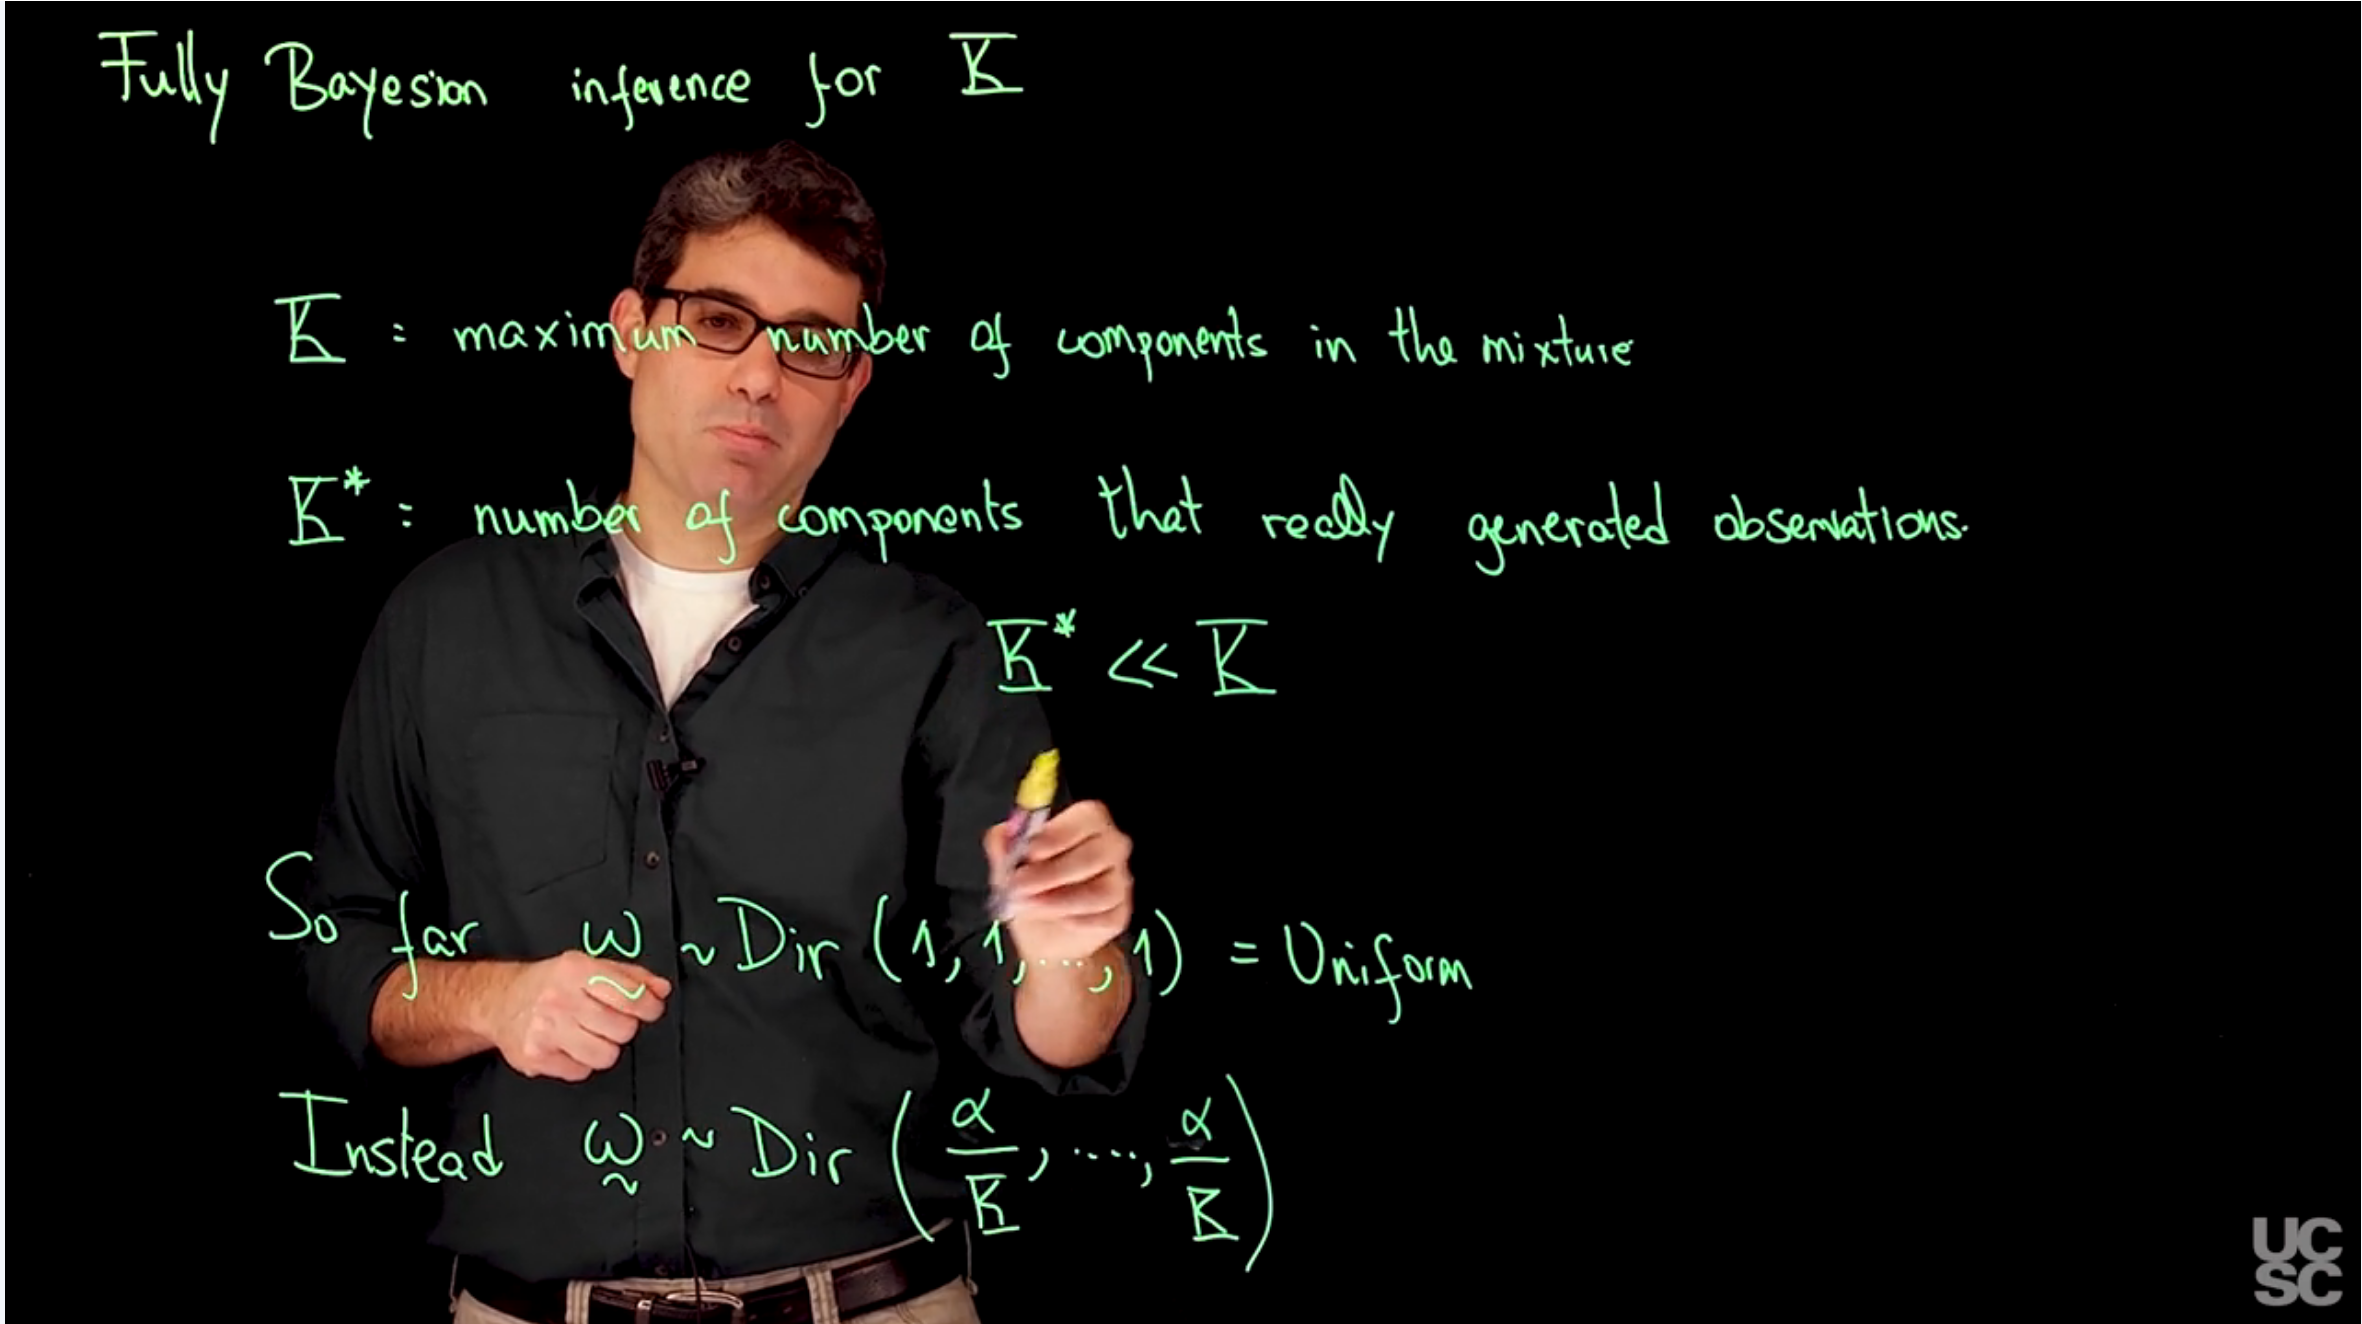 Fully Bayesian inference for K
K : maximum number of components in the mixture
K* : number of components that really generated observations.
K* << K
So far ω ~ Dir (1, 1, ..., 1) = Uniform
~
Instead ω ~ Dir (α/K, ...., α/K)
~
UC
SC